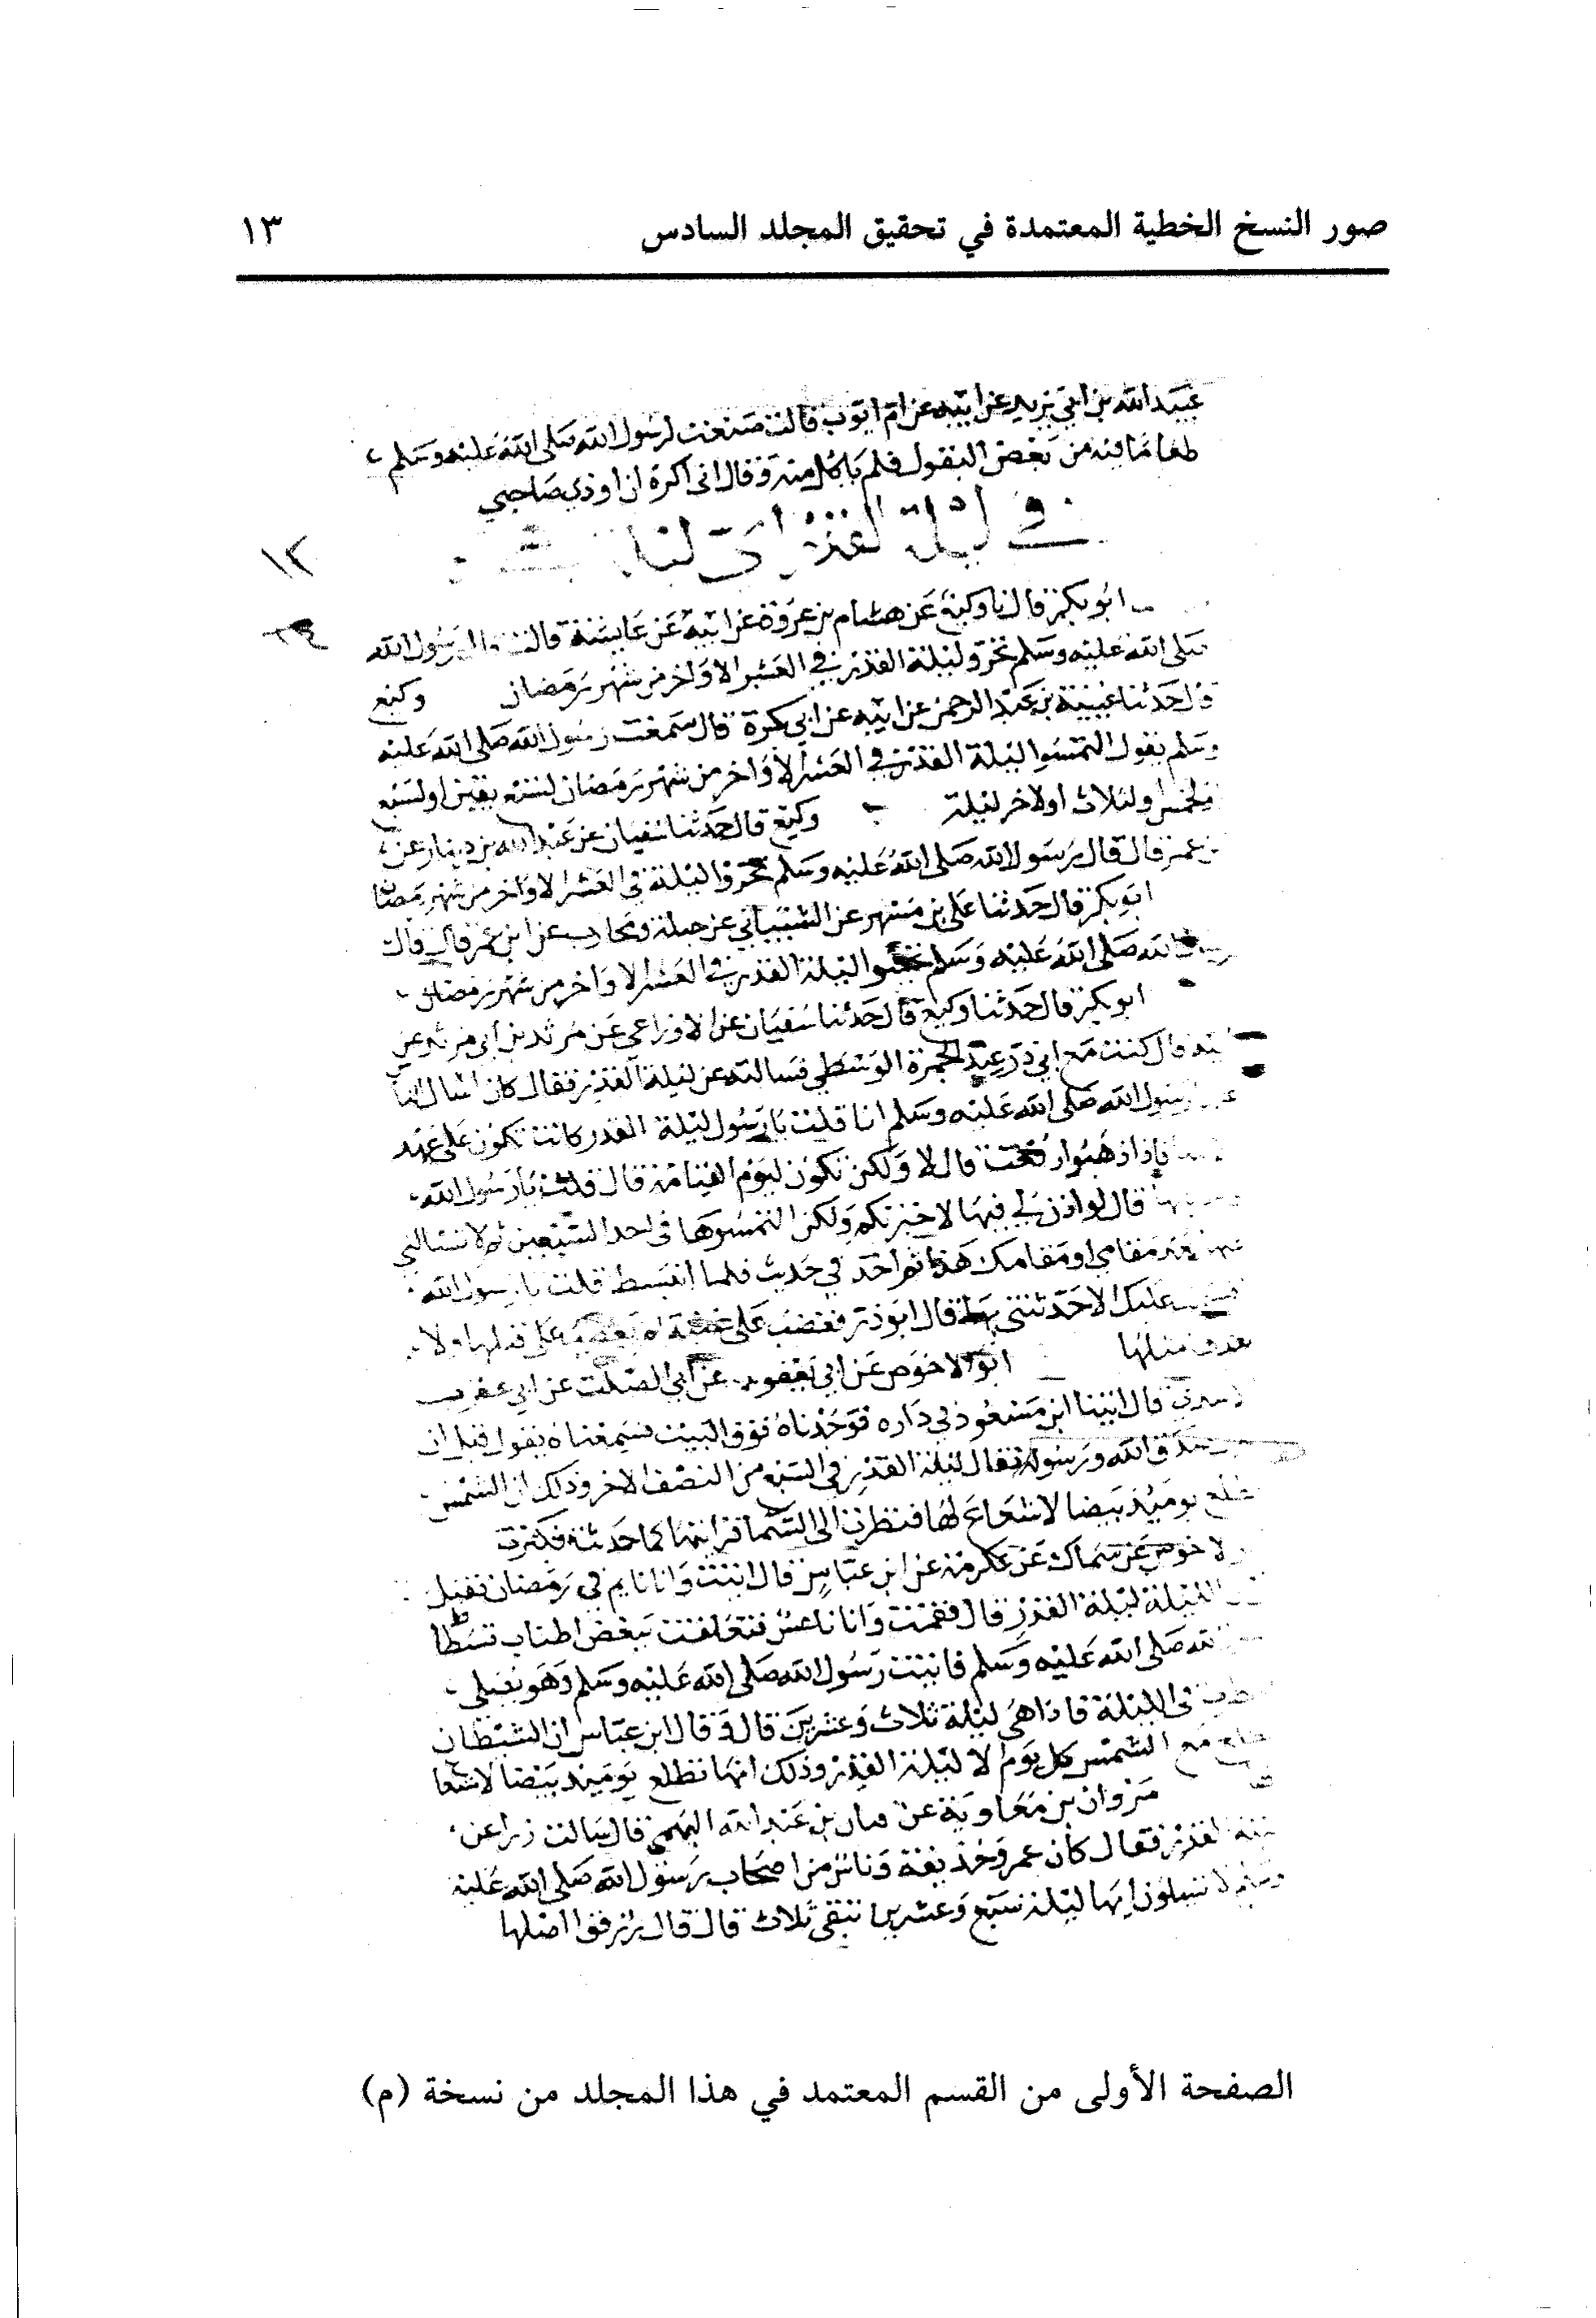 صور النسخ الخطية المعتمدة في تحقيق المجلد السادس
١٣
عبيد الله بن ابي يزيد عن ابيه عن ام ايوب قالت صنعت لرسول الله صلى الله عليه وسلم
طعاما فيه من بعض البقول فلم ياكل منه وقال انى اكره ان اوذي صاحبي
في ليلة القدر اي ليلة
١٢
ابو بكر قال نا وكيع عن هشام بن عروة عن ابيه عن عايشة قالت قال رسول الله
صلى الله عليه وسلم تحروا ليلة القدر في العشر الاواخر من شهر رمضان وكيع
قال حدثنا عيينة بن عبد الرحمن عن ابيه عن ابي بكرة قال سمعت رسول الله صلى الله عليه
وسلم يقول التمسوا ليلة القدر في العشر الاواخر من شهر رمضان لتسع بقين او لسبع
او لخمس او لثلاث او لاخر ليلة وكيع قال حدثنا سفيان عن عبد الله بن دينار عن
بن عمر قال قال رسول الله صلى الله عليه وسلم تحروا ليلة في العشر الاواخر من شهر رمضان
ابو بكر قال حدثنا علي بن مسهر عن الشيباني عن جبلة ومحارب عن ابن عمر قال قال
رسول الله صلى الله عليه وسلم تحينوا ليلة القدر في العشر الاواخر من شهر رمضان
ابو بكر قال حدثنا وكيع قال حدثنا سفيان عن الاوزاعي عن مرثد بن ابي مرثد عن
ابيه قال كنت مع ابي ذر عند الجمرة الوسطي فسالته عن ليلة القدر فقال كان اسال الناس
عنها رسول الله صلى الله عليه وسلم انا قلت يا رسول ليلة القدر كانت تكون على عهد
فاذا ذهبوا رفعت قال لا ولكن تكون ليوم القيامة قال قلت يا رسول الله
قال لو اذن لي فيها لاخبرتكم ولكن التمسوها في احد السبعين ثم لا تسالني
عنها بعد مقامي او مقامك هذا ثم اخذ في حديث فلما انبسط قلت يا رسول الله
عليك الا حدثتني بها قال ابو ذر فغضب علي غضبة لم يغضب علي قبلها ولا
بعدها مثلها ابو الاحوص عن ابي يعفور عن ابي الصلت عن ابي عقرب
الاسدي قال اتينا ابن مسعود في داره فوجدناه فوق البيت فسمعناه يقول قبل ان
صدق الله ورسوله فقال ليلة القدر في السبع من النصف الاخر وذلك ان الشمس
تطلع يوميذ بيضا لا شعاع لها فنظرت الى السما فرايتها كما حدثت فكبرت
الاحوص عن سماك عن عكرمة عن ابن عباس قال اتيت وانا نايم في رمضان فقيل
الليلة ليلة القدر قال فقمت وانا ناعس فتعلقت ببعض اطناب فسطاط
الله صلى الله عليه وسلم فاتيت رسول الله صلى الله عليه وسلم وهو يصلي
فنظرت في الليلة فاذا هي ليلة ثلاث وعشرين قال وقال ابن عباس ان الشيطان
يطلع مع الشمس كل يوم الا ليلة القدر وذلك انها تطلع يوميذ بيضا لا شعاع
مروان بن معاوية عن بن عبد الله النهمي قال سالت زرا عن
ليلة القدر فقال كان عمر وحذيفة وناس من اصحاب رسول الله صلى الله عليه
وسلم لا يشكون انها ليلة سبع وعشرين تبقى ثلاث قال قال زر فواصلها
الصفحة الأولى من القسم المعتمد في هذا المجلد من نسخة (م)